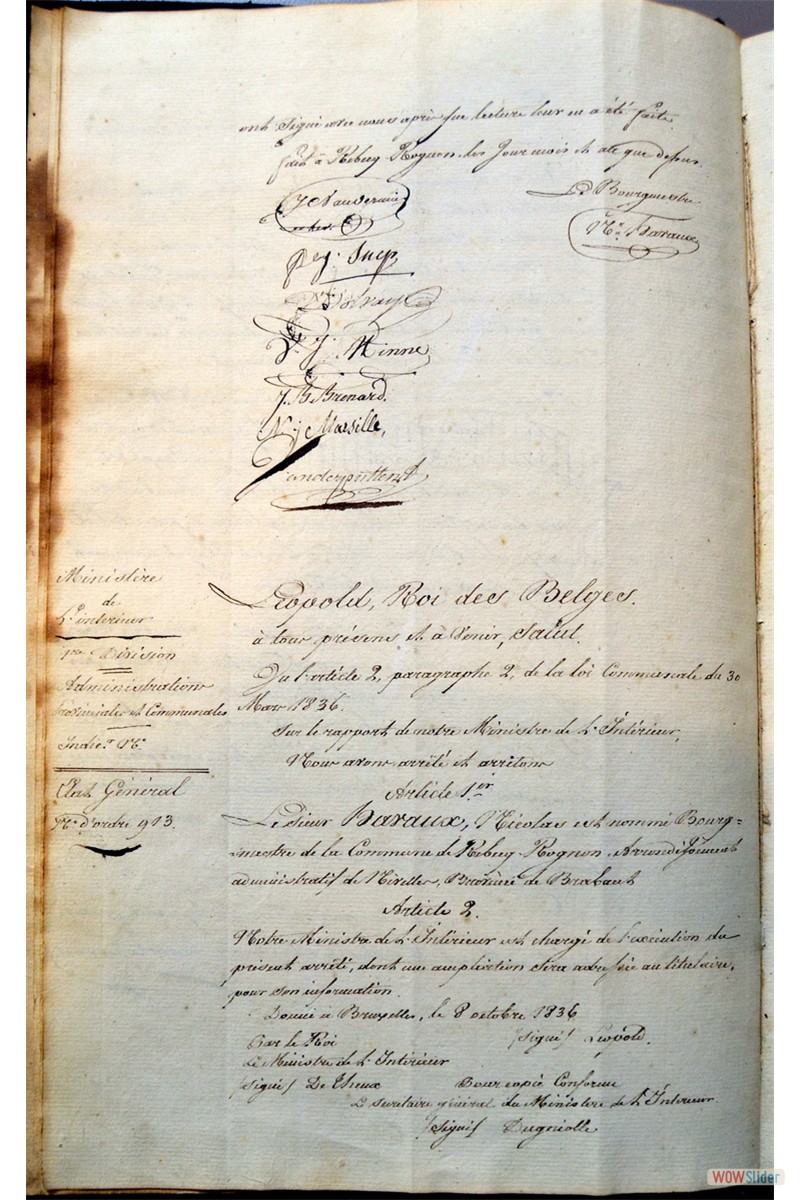 ont signé avec nous après que lecture leur en a été faite.
fait à Rebecq-Rognon les Jour mois et an que dessus.
Le Bourgmestre
Nas. Haraux
J. B. Brenard.
N. J. Marsille,
J. Minne
Vanderputten
Ministère
de
L'intérieur
1re Division
Administrations
provinciales et Communales
Indicr. No.
Etat Général
No. d'ordre 913.
Léopold, Roi des Belges.
à tous présens et à Venir, Salut.
Vu l'article 2, paragraphe 2, de la loi Communale du 30
Mars 1836.
Sur le rapport de notre Ministre de L'Intérieur,
Nous avons arrêté et arrêtons
Article 1er
Le Sieur Haraux, Nicolas est nommé Bourg=
mestre de la Commune de Rebecq-Rognon Arrondissement
administratif de Nivelles, Province de Brabant
Article 2.
Notre Ministre de L'Intérieur est chargé de l'exécution du
présent arrêté, dont une ampliation sera adressée au titulaire,
pour son information.
Donné à Bruxelles, le 8 octobre 1836
Par le Roi (signé) Léopold.
Le Ministre de L'Intérieur
(signé) De Theux Pour copie Conforme
Le secrétaire général du Ministère de L'Intérieur
(signé) Dugniolle
WOWSlider